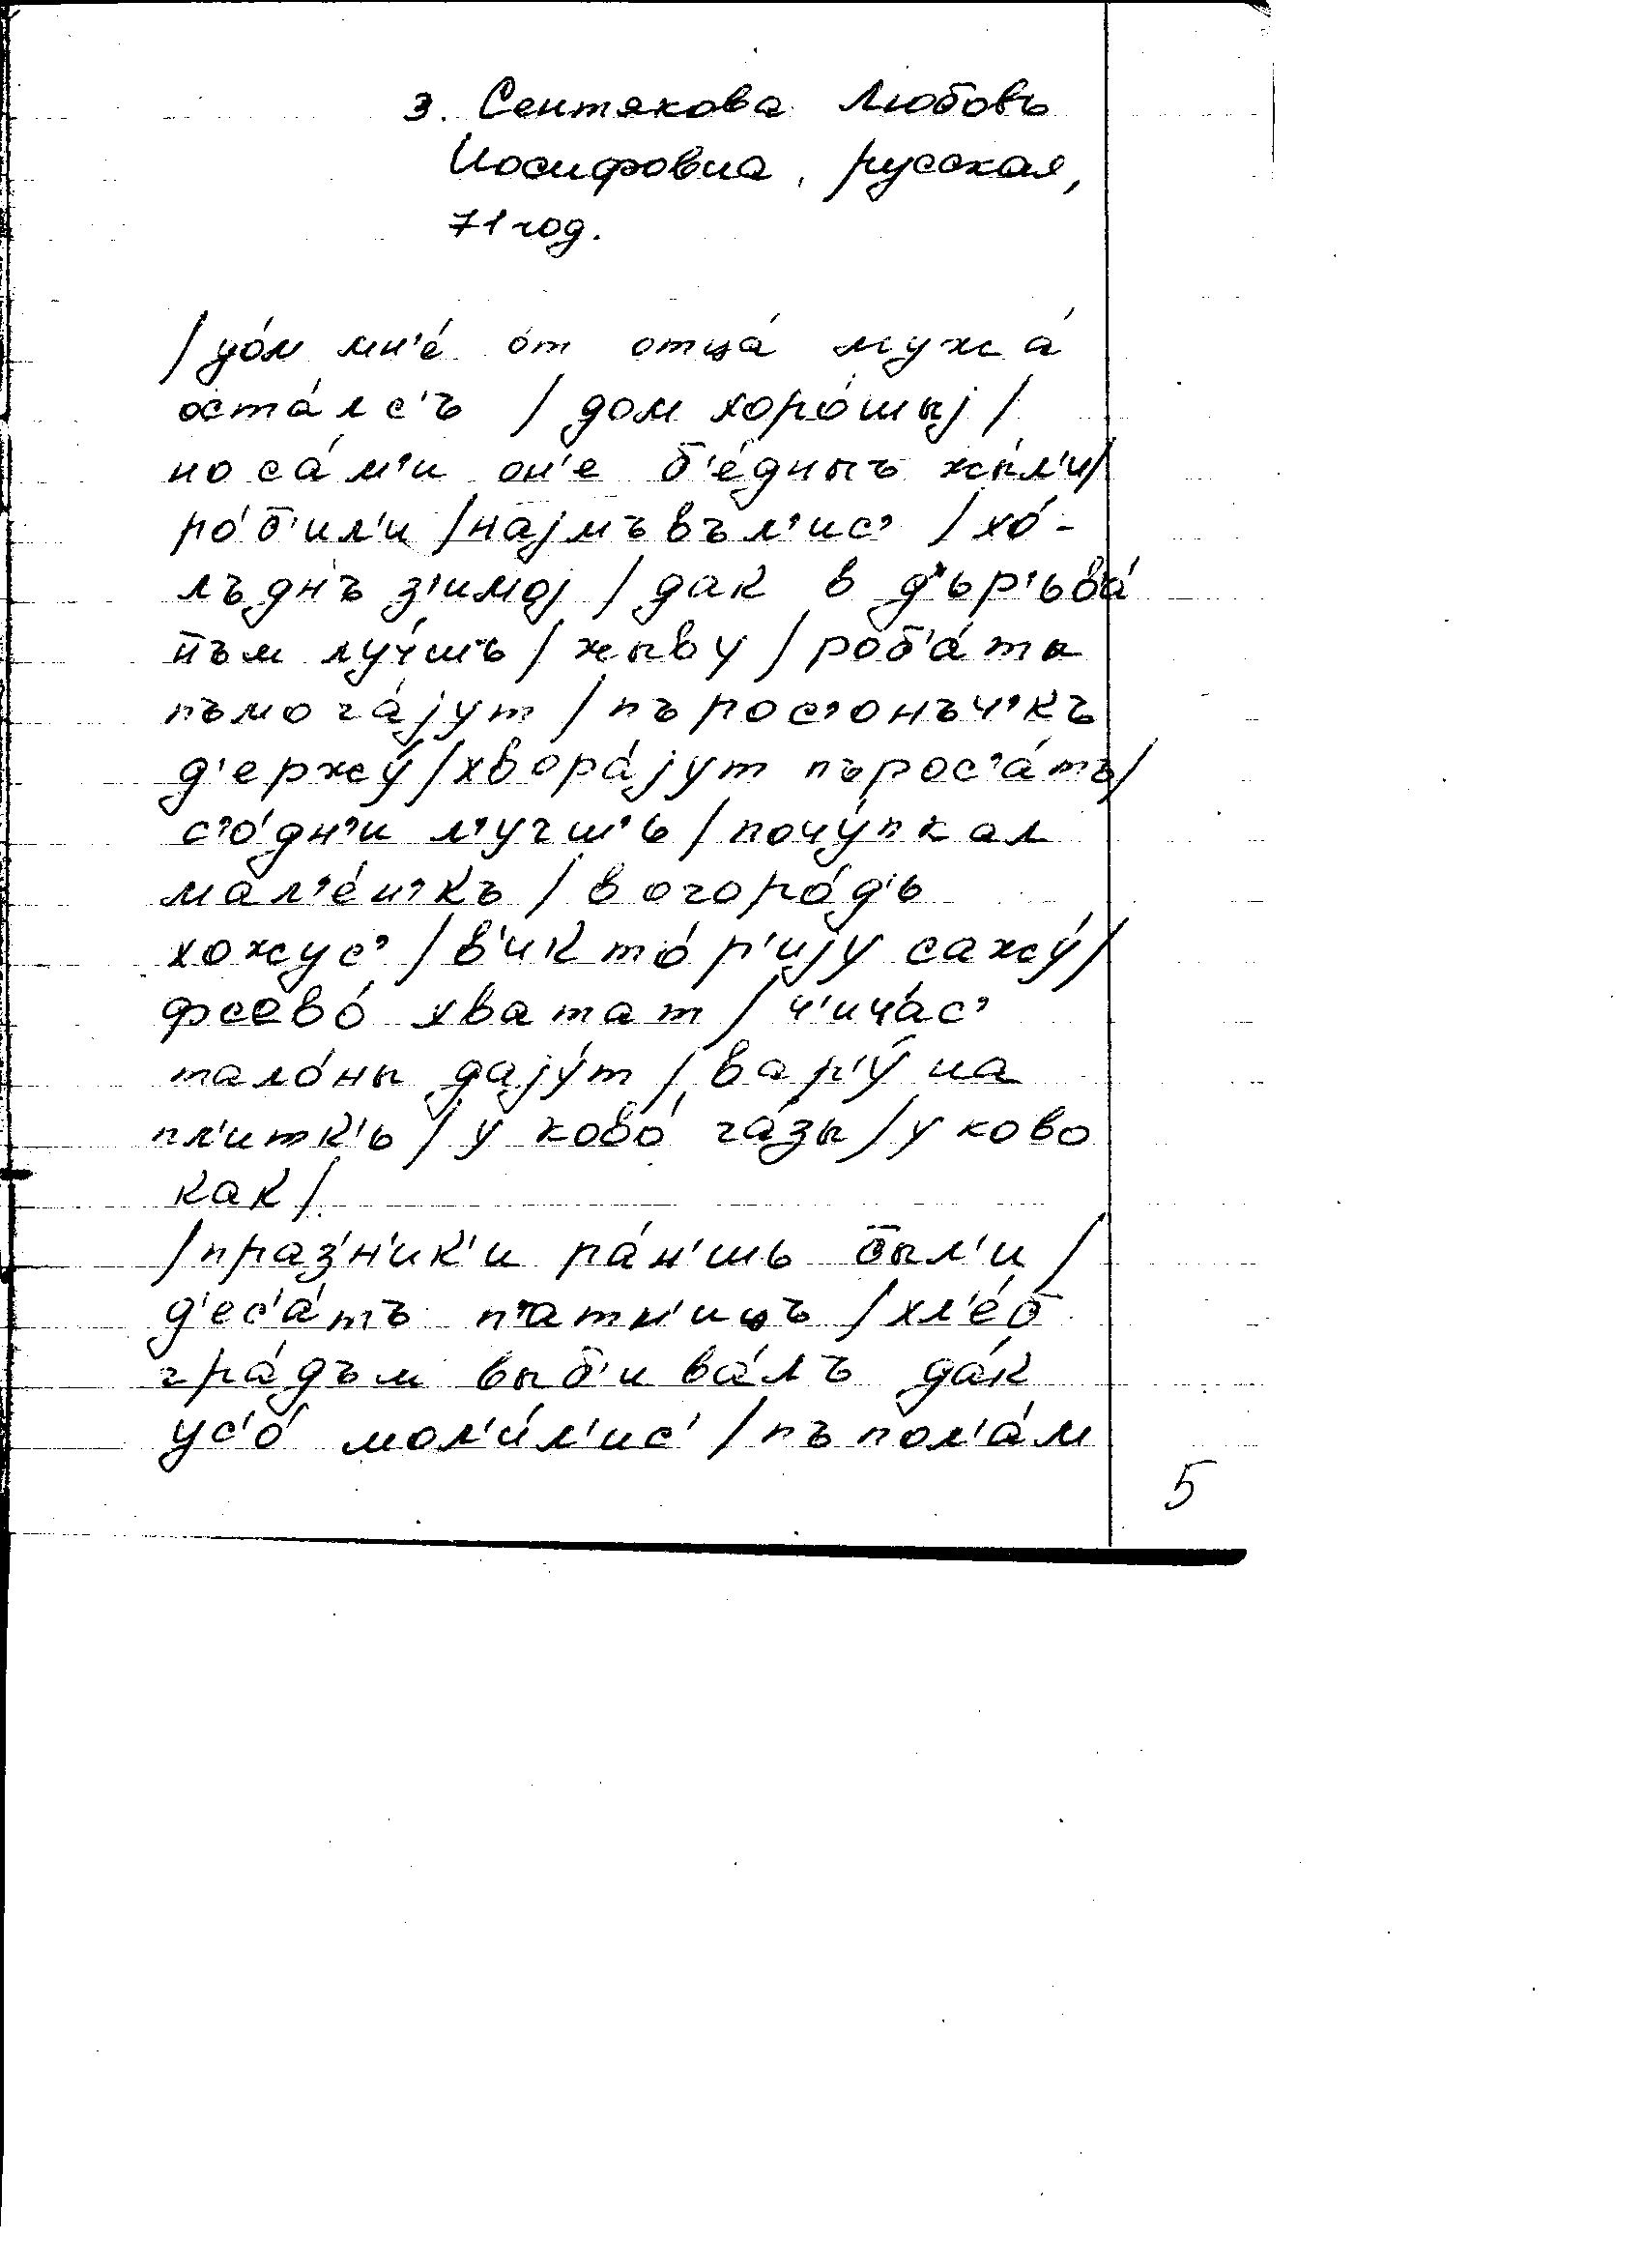 3. Сентякова Любовь
Иосифовна, русская,
71 год.
/до́м мн'е́ о́т отца́ мужа́
оста́лс'ъ / дом хоро́шыј /
но са́м'и он'е б'е́дныъ жы́л'и/
ро́б'ил'и /најмъвъл'ис' / хо́-
лъднъ з'имој / дак в д'ьр'ьва́
п̄ъм лу́чшъ / жыву / роб'а́ты
пъмога́јут / пърос'онъч'къ
д'ержу́ /хвора́јут пърос'а́тъ/
с'о́дн'и л'учш'ь / почу́пкал
мал'е́н'къ / в огоро́д'ь
хожус' / в'икто́р'ију сажу́/
фсево́ хватат / ч'ича́с'
тало́ны дају́т / вар'у́ на
пл'итк'ь / у ково́ га́зы / у ково
как /
/праз'н'ик'и ра́н'шь был'и /
д'ес'а́тъ п'атн'ицъ /хл'е́б
гра́дъм выб'ива́лъ да́к
ус'о́ мол'и́л'ис' / пъ пол'а́м
5